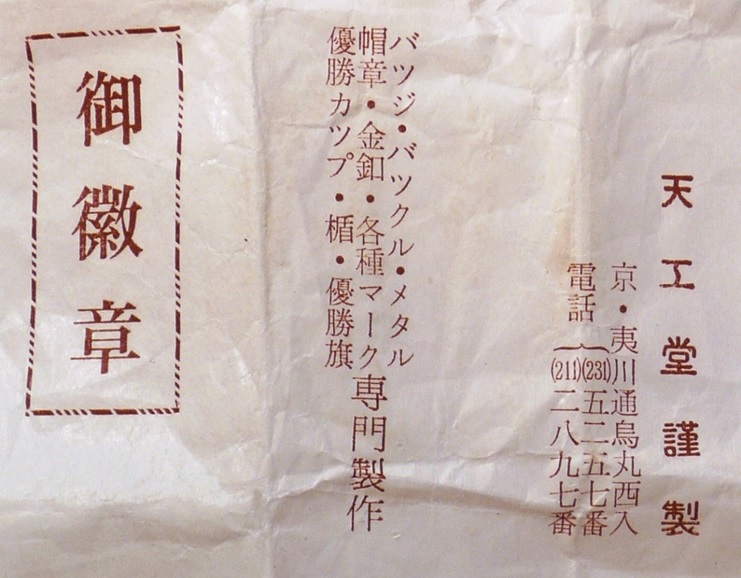 天工堂謹製
京・夷川通烏丸西入
電話(231)五二五七番
(211)二八九七番
バツジ・バツクル・メタル
帽章・金釦・各種マーク
優勝カツプ・楯・優勝旗
専門製作
御徽章